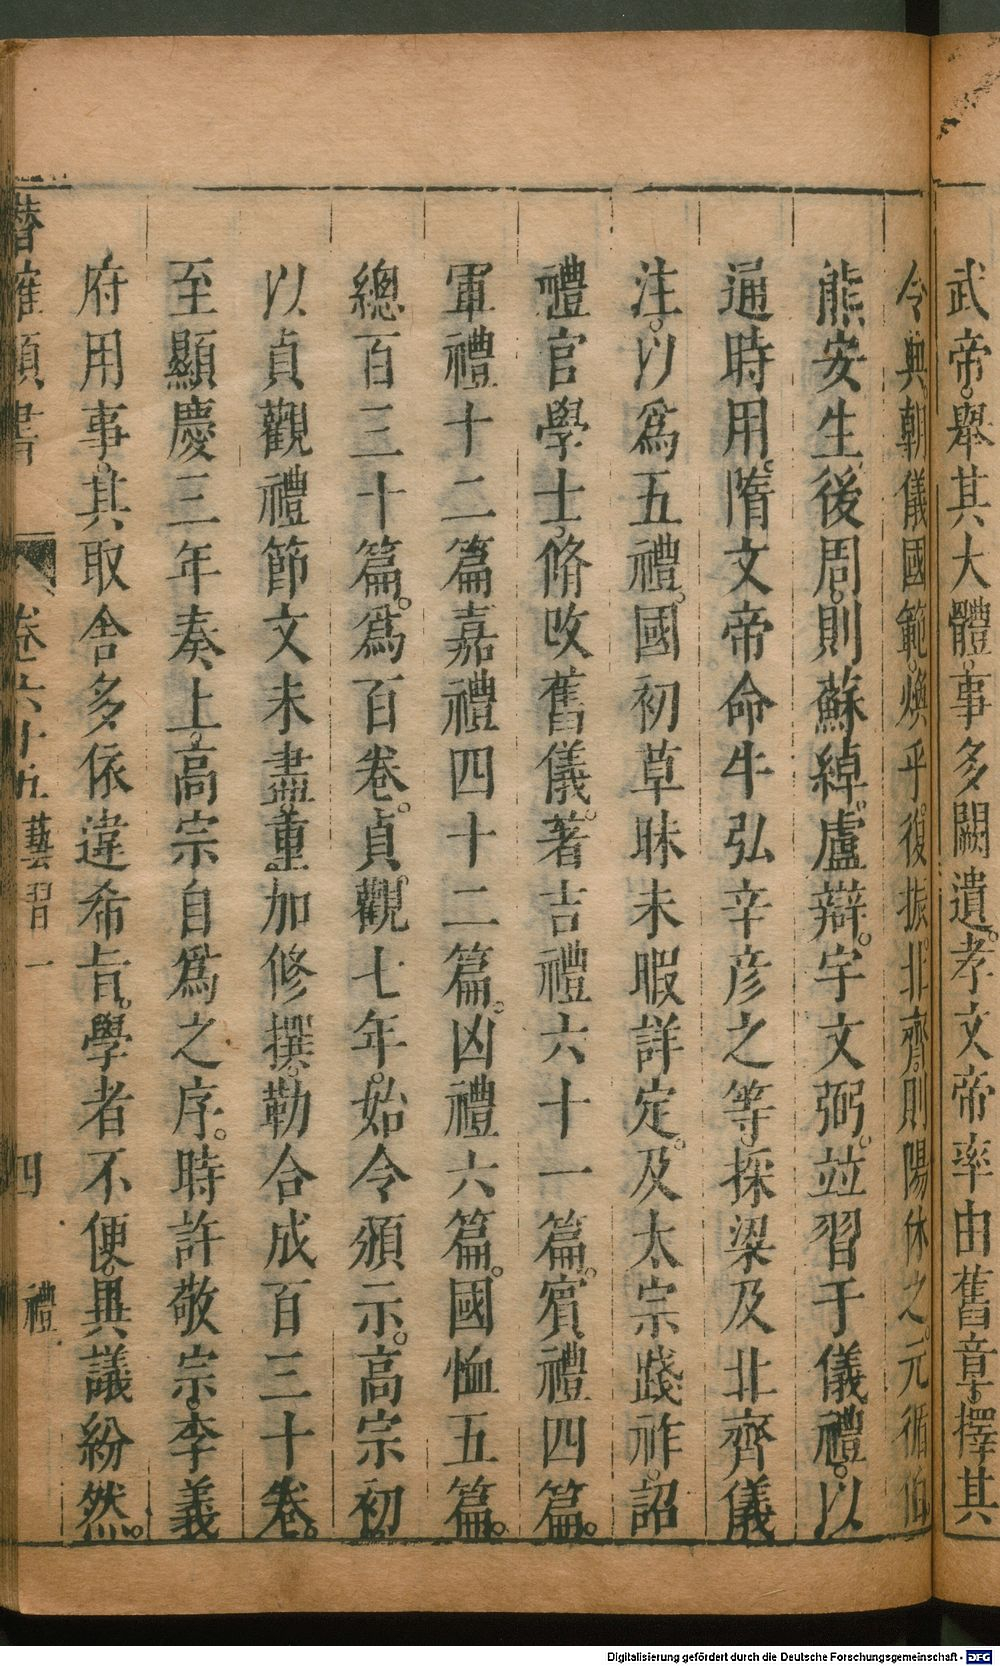 武帝。舉其大體。事多闕遺。孝文帝率由舊章。擇其
令典。朝儀國範。煥乎。復振。北齊。則陽休之。元循伯
熊安生。後周。則蘇綽。盧辯。宇文弼。竝習于儀禮。以
通時用。隋文帝命牛弘辛彦之等。採梁及北齊儀
注。以爲五禮。國初草昧未暇詳定。及太宗踐祚。詔
禮官學士。脩改舊儀。著吉禮六十一篇。賓禮四篇。
軍禮十二篇嘉禮四十二篇。凶禮六篇。國恤五篇。
總百三十篇。爲百卷。貞觀七年。始令頒示。高宗初
以貞觀禮節文未盡。重加修撰。勒合成百三十卷。
至顯慶三年奏上。高宗自爲之序。時許敬宗。李義
府用事。其取舍多依違希旨。學者不便。異議紛然。
潛確類書 卷六十五 藝習一 四 禮
Digitalisierung gefördert durch die Deutsche Forschungsgemeinschaft - DFG